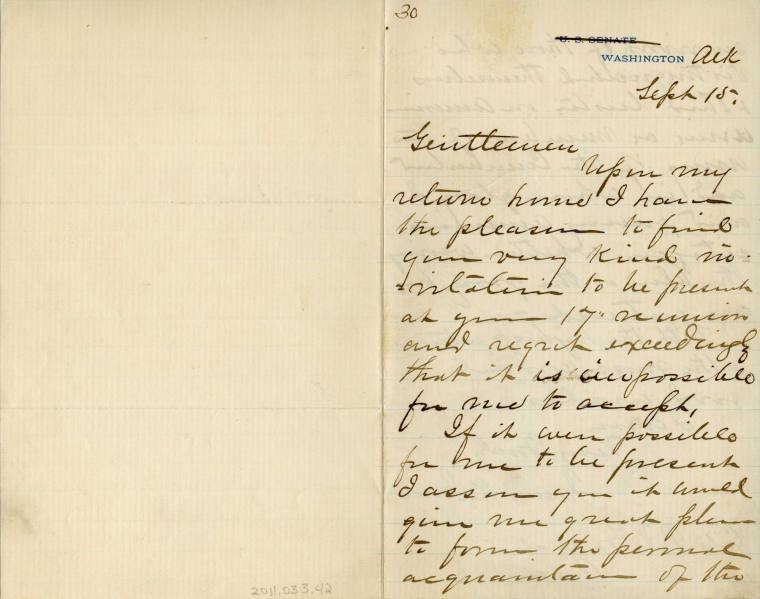 30
U. S. SENATE
WASHINGTON Ark
Sept 15.
Gentlemen
Upon my
return home I have
the pleasure to find
your very kind in-
-vitation to be present
at your 17" reunion
and regret exceedingly
that it is impossible
for me to accept,
If it were possible
for me to be present
I assure you it would
give me great pleasure
to form the personal
acquaintance of the
2011.033.42